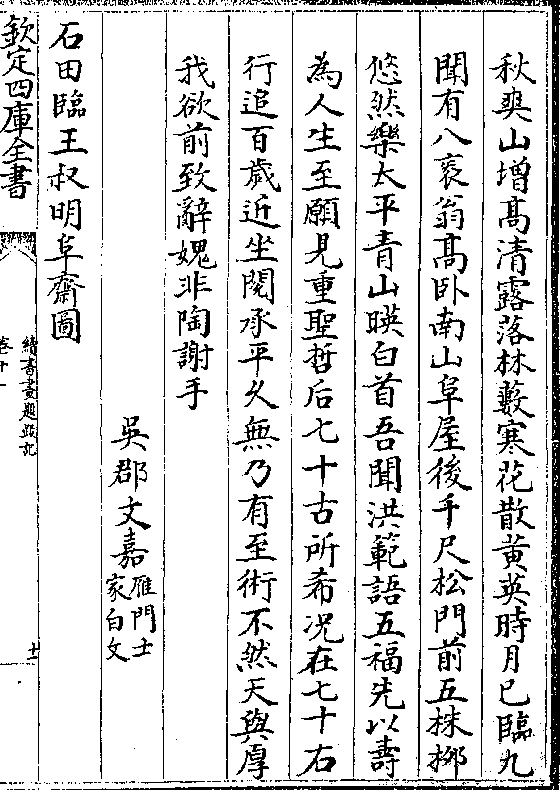 秋爽山增髙清露落林藪寒花散黄英時月已臨九
聞有八袠翁髙卧南山阜屋後千尺松門前五株栁
悠然樂太平青山暎白首吾聞洪範語五福先以壽
為人生至願見重聖哲后七十古所希况在七十右
行追百歲近坐閱承平久無乃有至術不然天與厚
我欲前致辭媿非陶謝手
吳郡文嘉雁門士家白文
石田臨王叔明阜齋圖
欽定四庫全書
續書畫題跋記
卷十一
十二